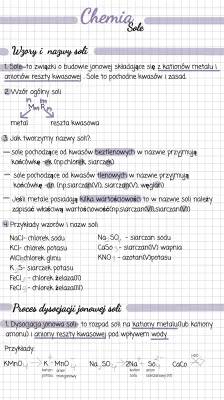 Chemia
Sole
Wzory i nazwy soli
1. Sole-to związki o budowie jonowej składające się z kationów metalu i
anionów reszty kwasowej. Sole to pochodne kwasów i zasad.
2. Wzór ogólny soli
metal reszta kwasowa
3. Jak tworzymy nazwy soli?:
– sole pochodzące od kwasów beztlenowych w nazwie przyjmują
końcówkę -ek (np.chlorek, siarczek)
– sole pochodzące od kwasów tlenowych w nazwie przyjmują
końcówkę -an (np.siarczan(VI), siarczan(IV), węglan)
– Jeśli metale posiadają kilka wartościowości to w nazwie soli należy
zapisać właściwą wartościowość(np.siarczan(VI),siarczan(IV))
4. Przykłady wzorów i nazw soli:
NaCl- chlorek sodu
KCl- chlorek potasu
AlCl3-chlorek glinu
K2S- siarczek potasu
FeCl2- chlorek żelaza(II)
FeCl3- chlorek żelaza(III)
Na2SO4 - siarczan sodu
CaSO4 - siarczan(VI) wapnia
KNO3 - azotan(V)potasu
Proces dysocjacji jonowej soli
1. Dysocjacja jonowa soli- to rozpad soli na kationy metalu(lub kationy
amonu) i aniony reszty kwasowej pod wpływem wody.
Przykłady: